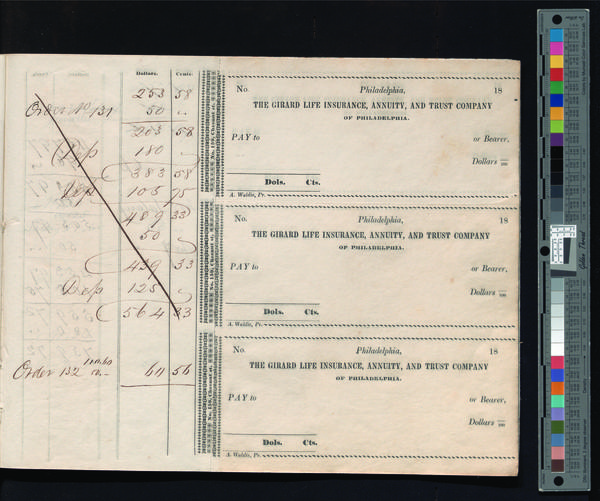 Dollars. Cents.
253 58
Order No 131 50 "
203 58
Dep 180 "
383 58
Dep 105 75
489 33
50 "
439 33
Dep 125 "
564 33
Order 132 64 56
No. 159, Chesnut st.
No. Philadelphia, 18
THE GIRARD LIFE INSURANCE, ANNUITY, AND TRUST COMPANY
OF PHILADELPHIA.
PAY to or Bearer,
Dollars /100
Dols. Cts.
A. Waldie, Pr.
No. 159, Chesnut st.
No. Philadelphia, 18
THE GIRARD LIFE INSURANCE, ANNUITY, AND TRUST COMPANY
OF PHILADELPHIA.
PAY to or Bearer,
Dollars /100
Dols. Cts.
A. Waldie, Pr.
No. 159, Chesnut st.
No. Philadelphia, 18
THE GIRARD LIFE INSURANCE, ANNUITY, AND TRUST COMPANY
OF PHILADELPHIA.
PAY to or Bearer,
Dollars /100
Dols. Cts.
A. Waldie, Pr.